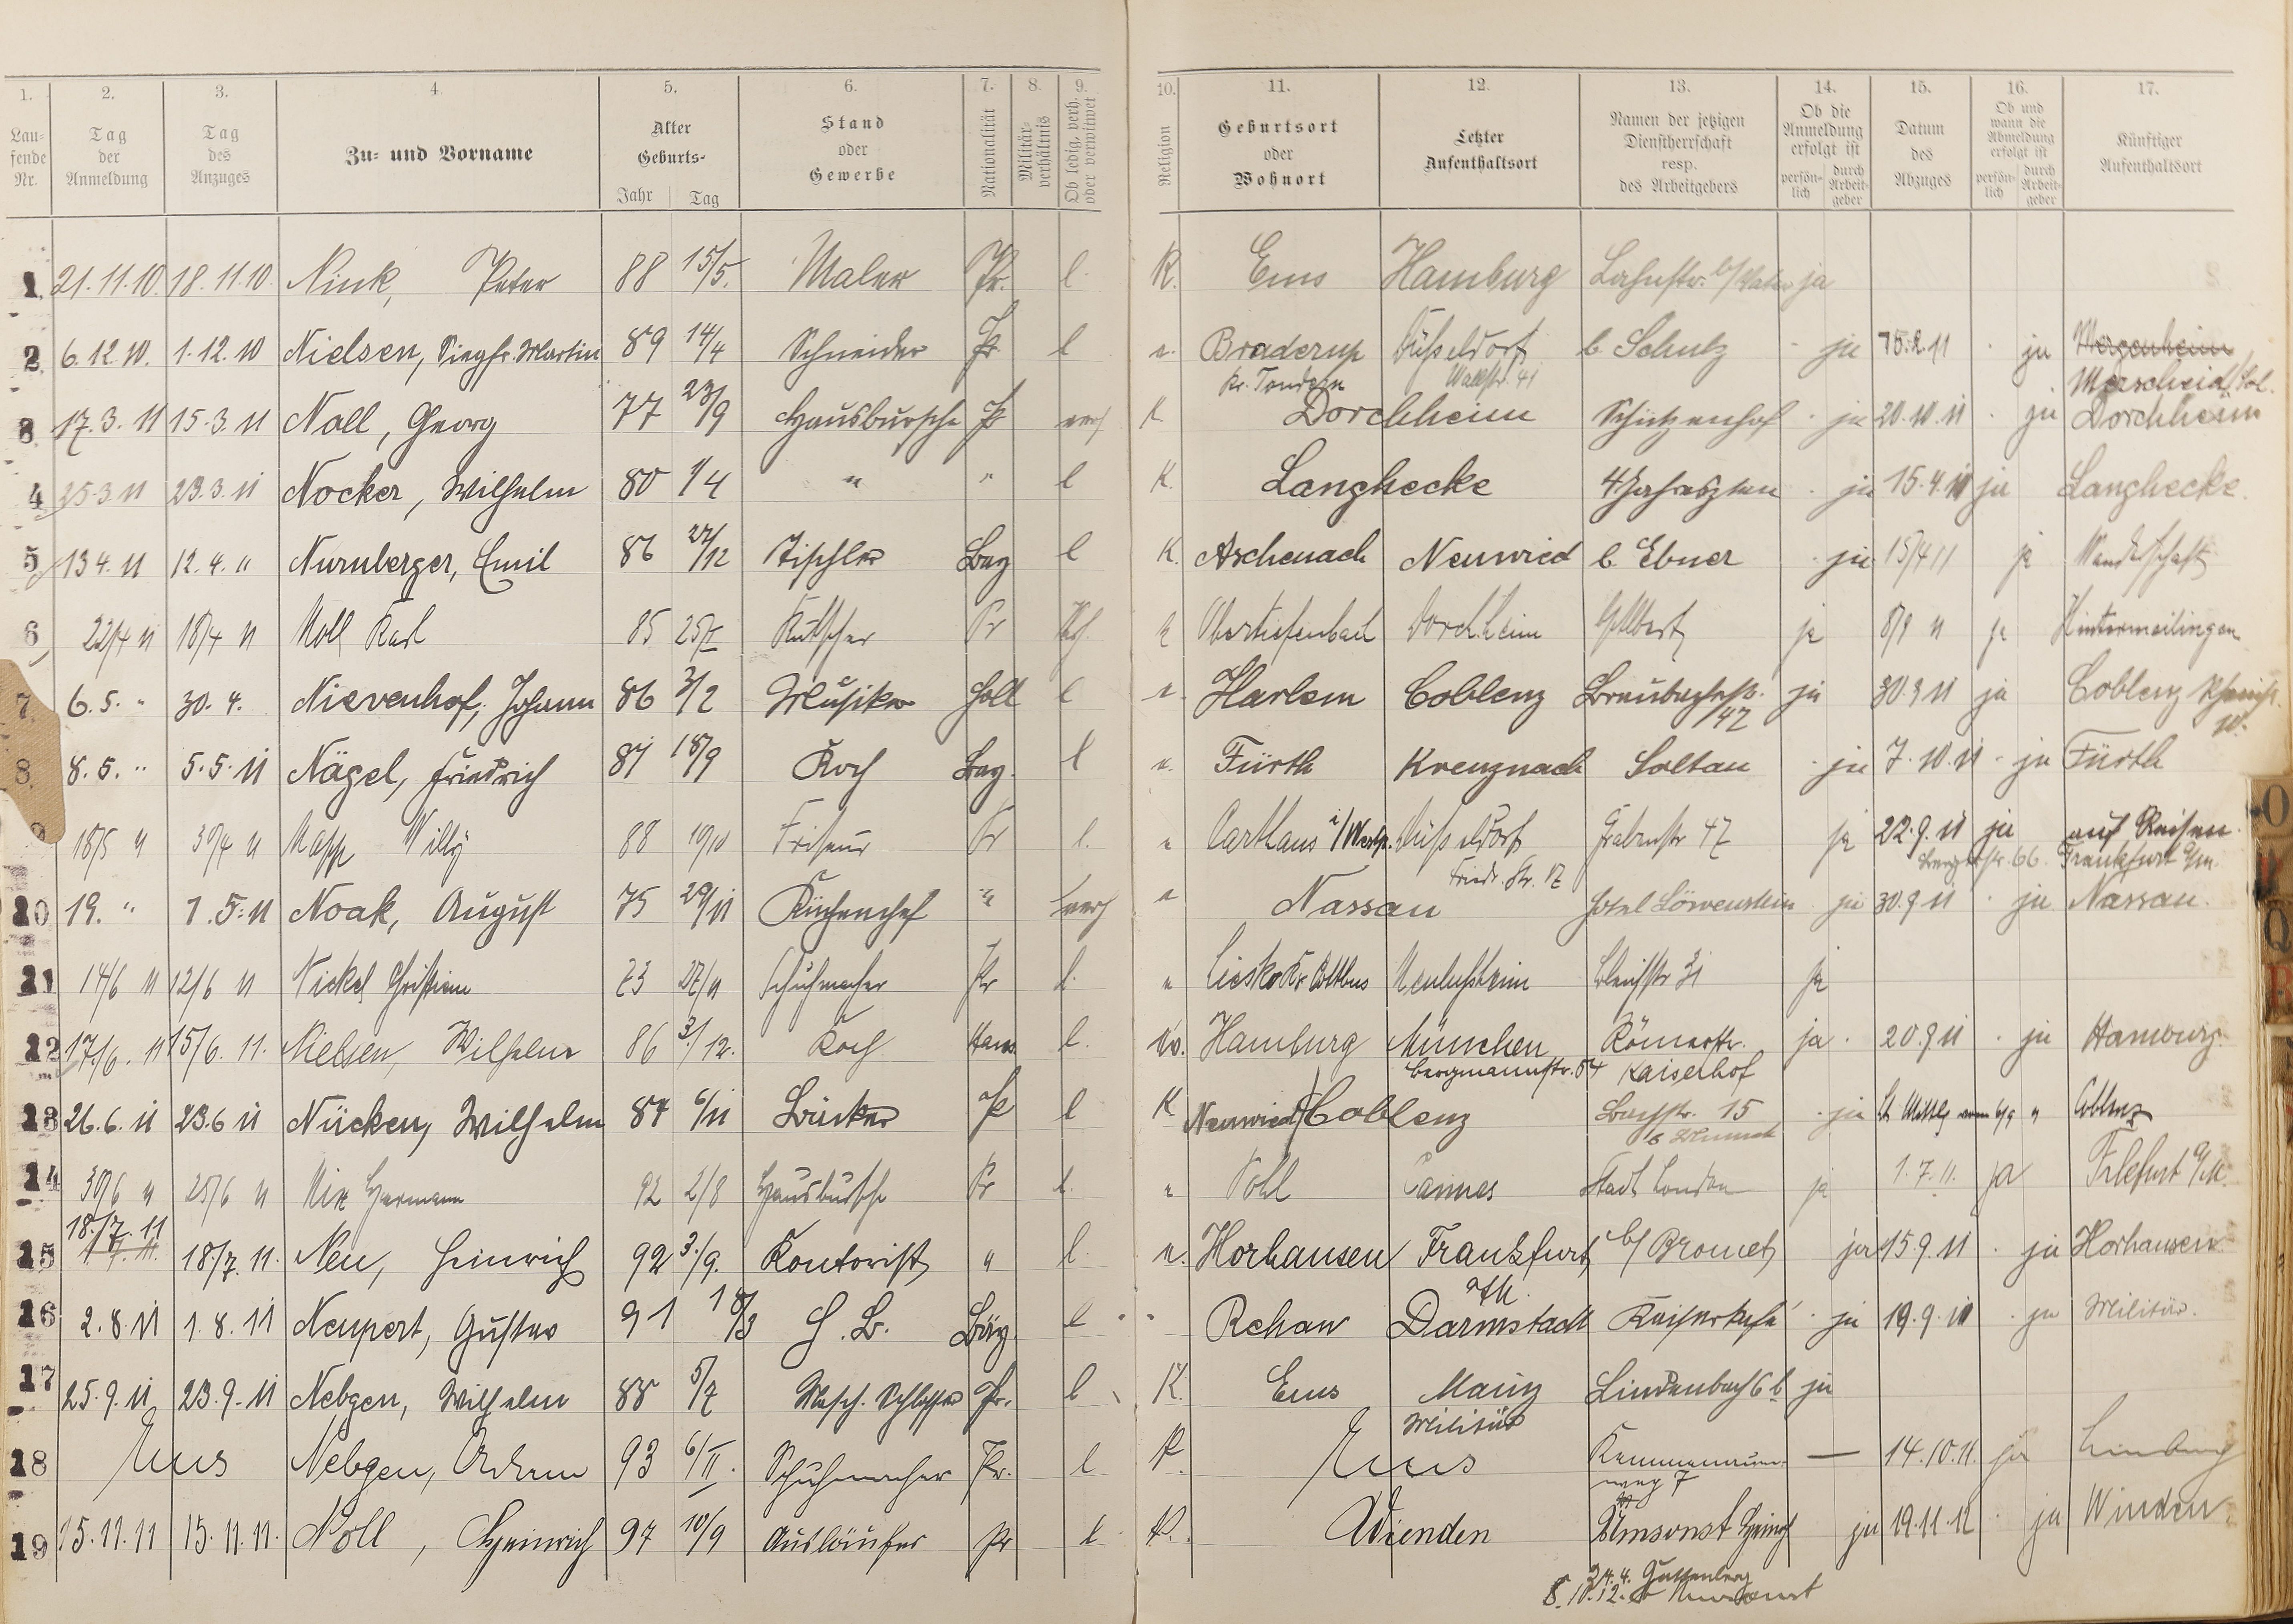 1. 2. 3. 4. 5. 6. 7. 8. 9. 10. 11. 12. 13. 14. 15. 16. 17.
Laufende Nr. Tag der Anmeldung Tag des Anzuges Zu- und Vorname Alter Geburts- Jahr Tag Stand oder Gewerbe Nationalität Militärverhältnis Ob ledig, verh. oder verwitwet Religion Geburtsort oder Wohnort Letzter Aufenthaltsort Namen der jetzigen Dienstherrschaft resp. des Arbeitgebers Ob die Anmeldung erfolgt ist persönlich durch Arbeitgeber Datum des Abzuges Ob und wann die Abmeldung erfolgt ist persönlich durch Arbeitgeber Künftiger Aufenthaltsort
1. 21.11.10. 18.11.10. Nink, Peter 88 15/5. Maler Pr. l. K. Ems Hamburg Lahnstr. b/ Vater ja
2. 6.12.10. 1.12.10 Nielsen, Siegfr. Martin 89 14/4 Schneider Pr l Braderup Düsseldorf b. Schulz ja 15.2.11 ja Mergenheim
Kr. Tondern Wallstr. 41 Merscheid/Sol.
3. 17.3.11 15.3.11 Noll, Georg 77 23/9 Hausbursche Pr verh K. Dorchheim Schützenhof ja 20.10.11 ja Dorchheim
4 25.3.11 23.3.11 Nocker, Wilhelm 80 1/4 " " l K. Langhecke 4 Jahreszten ja 15.4.11 ja Langhecke.
5 13.4.11 12.4. " Nurnberger, Emil 86 Tischler Bay l K. Aschenach Neuwied b. Ebner ja 15/4 11 ja Wanderschaft
6 22/4 11 18/4 11 Noll Karl 85 Kutscher Pr Vh Obertiefenbach Dorchheim ja 8/9 11 ja Hintermeilingen
7. 6.5. " 30.4. Nievenhof, Johann 86 3/2 Musiker Holl l Harlem Coblenz Braubacherstr. 47 ja 30.9 11 ja Coblenz
8. 8.5. " 5.5.11 Nägel, Friedrich 87 18/9 Koch Bay. l Fürth Kreuznach Soltau ja 7.10.11 ja Fürth
18/5 11 30/4 11 Willy 88 19/10 Friseur Pr l. Carthaus i/Westpr. Düsseldorf Grabenstr 47 ja 22.9.11 ja auf Reisen.
Friedr. Str. 66. Frankfurt a/m.
10 19. " 1.5.11 Noak, August 75 29/11 Küchenchef " verh Nassau Hotel Löwenstein ja 30.9 11 ja Nassau.
11 14/6 11 12/6 11 Nickel Christian 73 27/11 Schuhmacher Pr l. Kr Cottbus 31 ja
12 17/6. 11 15/6. 11. Nielsen, Wilhelm 86 3/12. Koch Ham. l. Hamburg München Römerstr. ja 20.9 11 ja Hamburg.
Bergmannstr. 54 Kaiserhof
13 26.6.11 23.6 11 Nücken, Wilhelm 87 6/11 Bäcker Pr l K Neuwied/Coblenz Bachstr. 15 ja Coblenz
14 30/6 11 25/6 11 Nix Hermann 92 2/8 Hausbursche Pr l. Pohl Cannes Stadt London ja 1.7.11. ja Frkfurt a/M.
18./7. 11
15 18./7. 11. Neu, Heinrich 92 3./9. Kontorist " l. Horhausen Frankfurt b/ Bromet ja 15.9 11 ja Horhausen
a/M.
16 2.8.11 1.8.11 Neupert, Gustav 91 18/3 H. B. Bay. l " Rehau Darmstadt Kaiserkafé ja 19.9.11 ja Militär.
17 25.9.11 23.9.11 Nebgen, Wilhelm 88 5/7 Masch. Schlosser Pr. l K. Ems Mainz Lindenbach 6 b ja
Militär
18 Ems Nebgen, Adam 93 6/II. Schuhmacher Pr. l K. Ems Kemmenauer- — 14.10.11. ja Limburg
weg 7
19 15.11.11 15.11.11. Noll, Heinrich 97 10/9 Ausläufer Pr l K. Wienden Umsonst Heinrich ja 19.11.12 ja Winden
24.4. Guttenberg
8.10.12. Umsonst